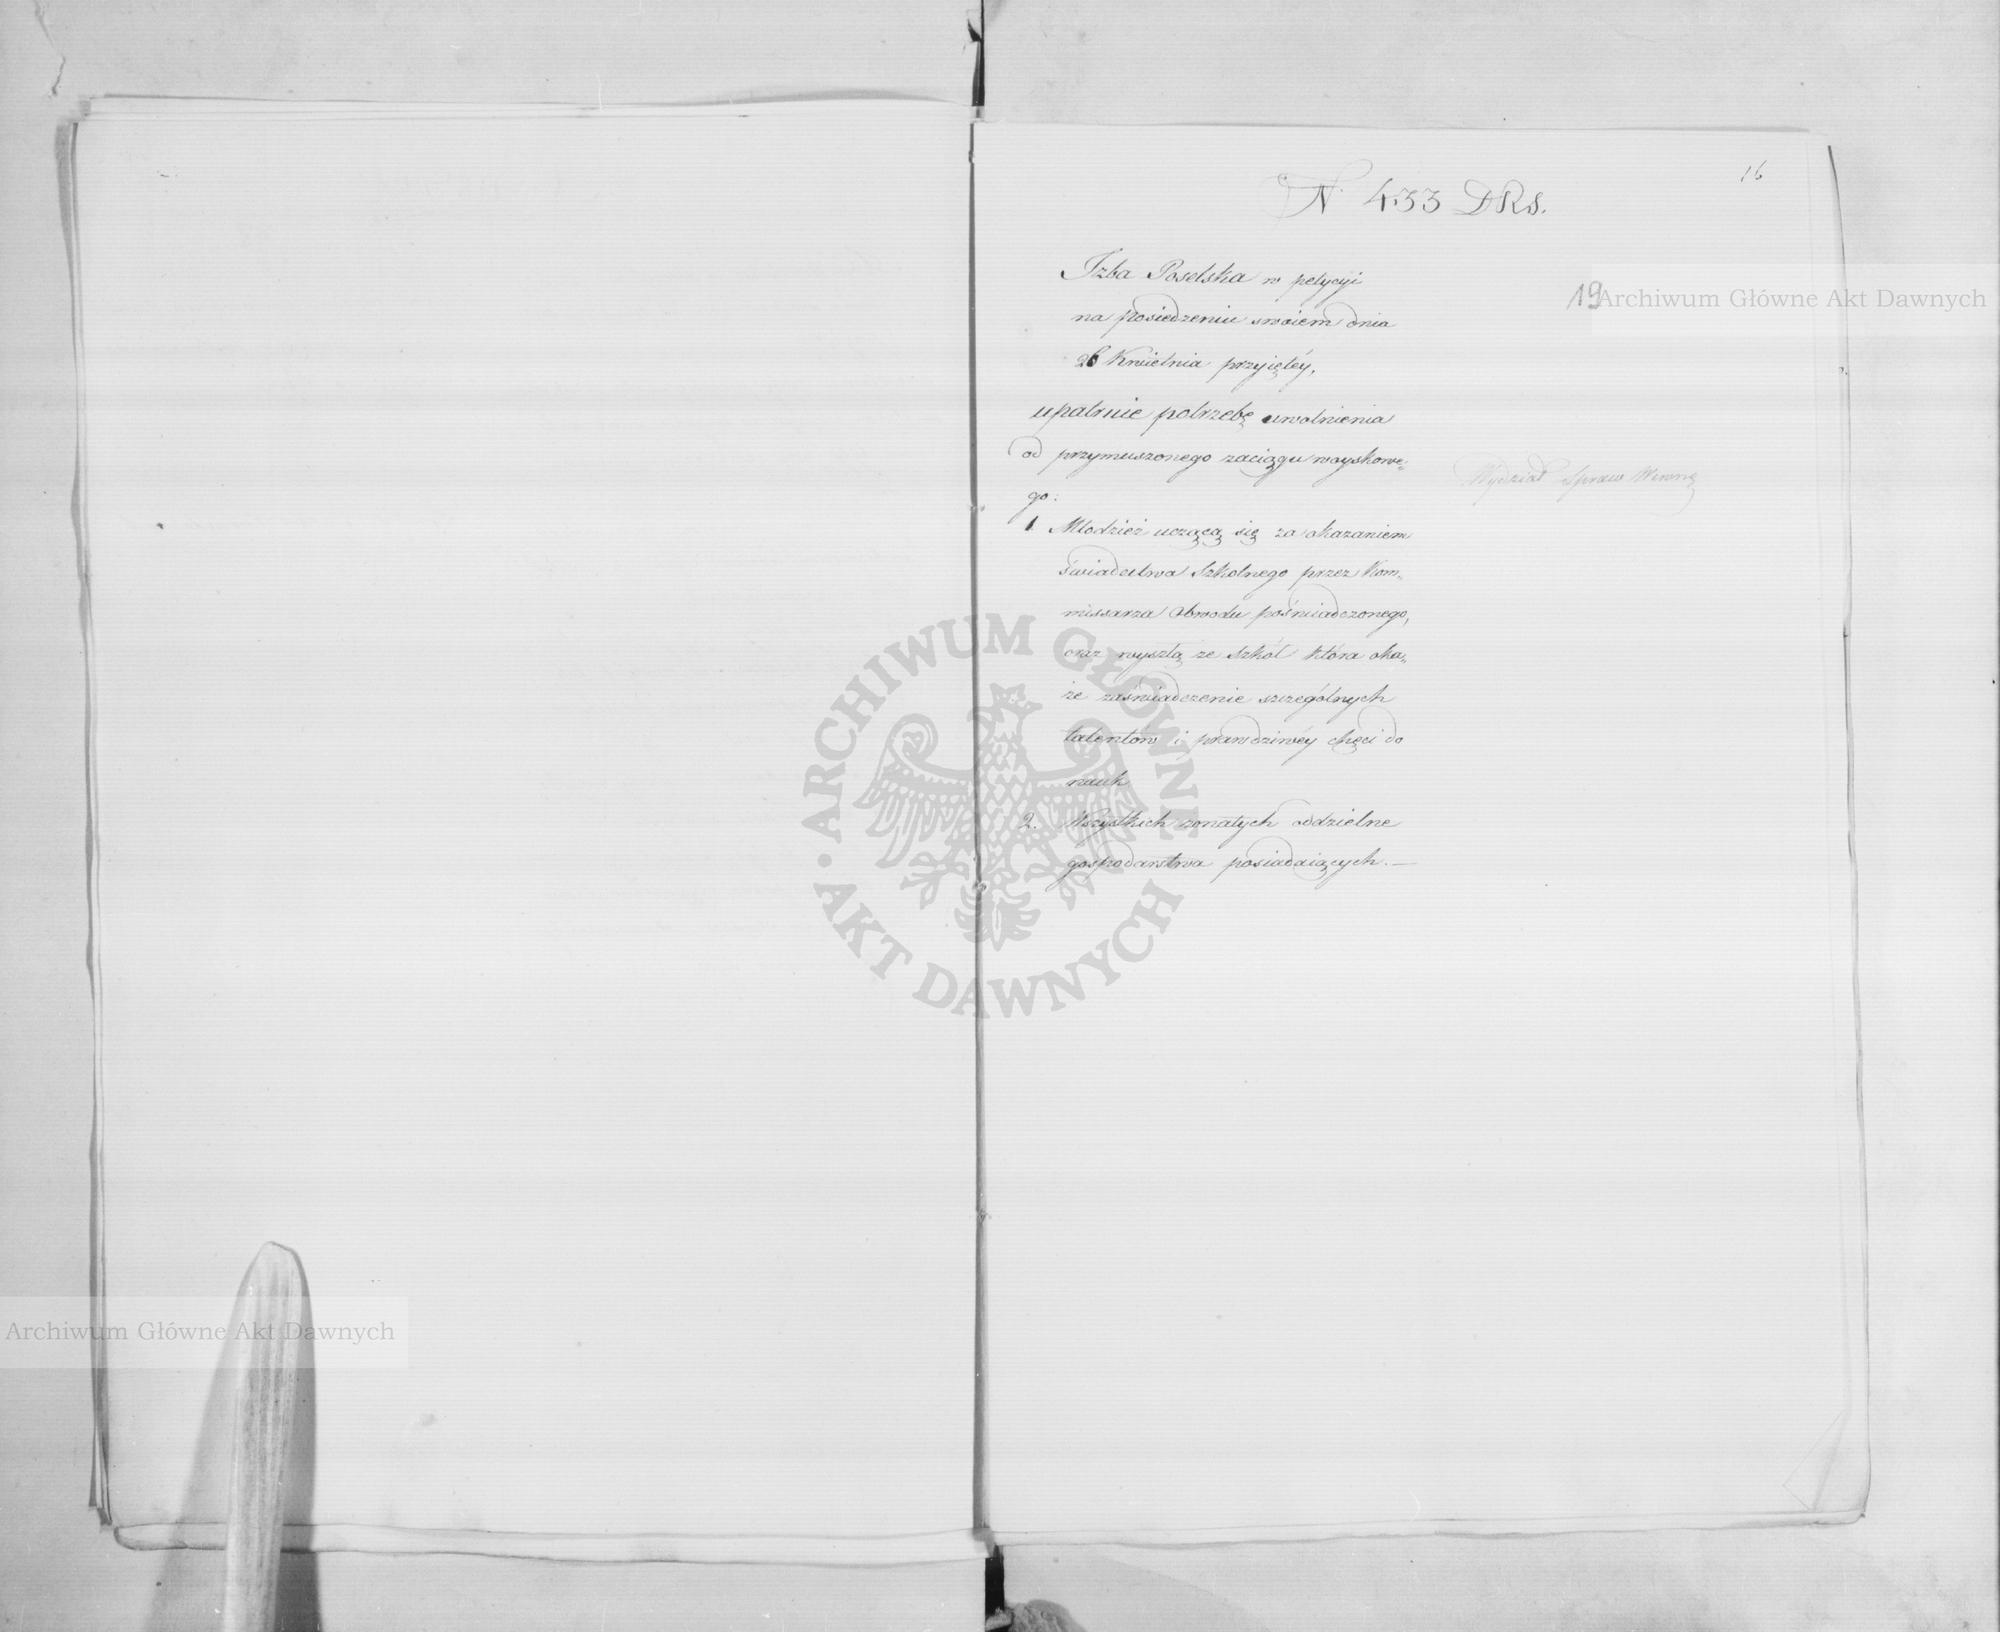 16
N 433 DRS.
19
Izba Poselska w petycyi
na posiedzeniu swoiem dnia
26 Kwietnia przyiętéy,
upatruie potrzebę uwolnienia
od przymuszonego zaciągu woyskowe„
go:
Wydział Spraw Wewnę
1. Młodzież uczącą się za okazaniem
świadectwa Szkolnego przez Kom„
missarza Obwodu poświadczonego,
oraz wyszłą ze szkół która oka„
że zaświadczenie szczególnych
talentów i prawdziwéy chęci do
nauk
2. Wszystkich żonatych oddzielne
gospodarstwa posiadaiących. —
Archiwum Główne Akt Dawnych
ARCHIWUM GŁÓWNE · AKT DAWNYCH ·
Archiwum Główne Akt Dawnych